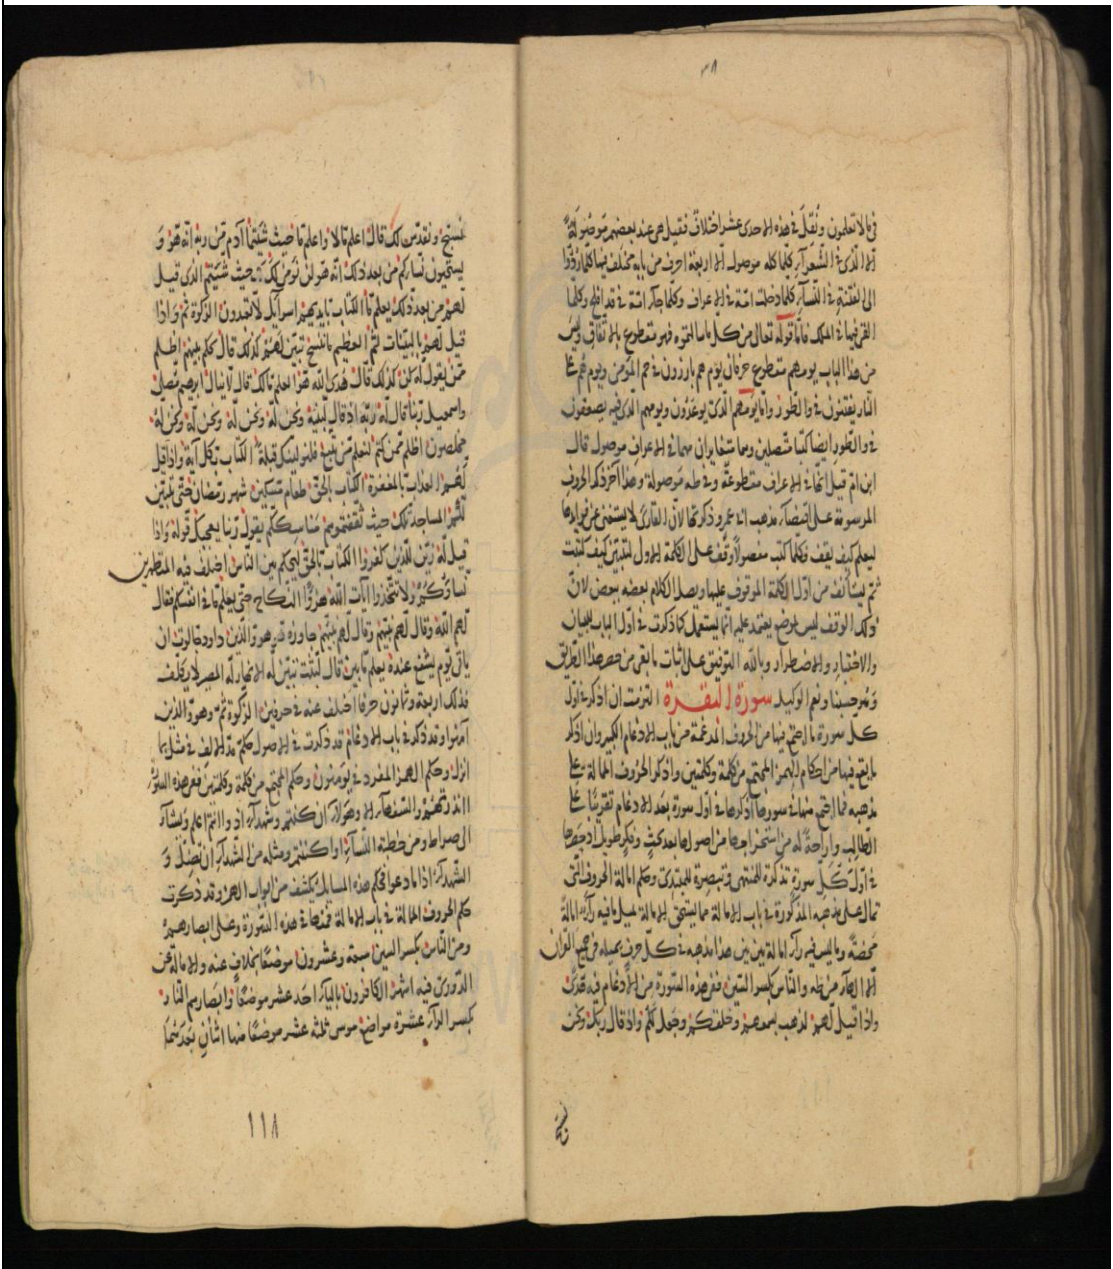 ٣٨
في ما لا تعلمون ونقل في هذه الاحدى عشر اختلاف فقيل هي عند بعضهم موصولة
الا الذي في الشعرآء كلما كله موصول الا اربعة احرف من بابه مختلف فيها كلما ردوا
الى الفتنة في النسآء كلما دخلت امة في الاعراف وكلما جآء امة في قد افلح وكلما
القي فيها في الملك فاما قوله تعالى من كل ما سالتموه فهو مقطوع بالاتفاق وليس
من هذا الباب يومهم مقطوع حرفان يوم هم بارزون في حم المؤمن ويوم هم على
النار يفتنون في والطور واما يومهم الذي يوعدون ويومهم الذي فيه يصعقون
في والطور ايضا كتبا متصلين ومما مهما في الاعراف موصول قال
ابن ام قيل انها في الاعراف مقطوعة وفي طه موصولة وهذا آخر ذكر الحروف
المرسومة على مذهب ابي عمرو ذكرتها لان القارئ لا يستغني عن
ليعلم كيف يقف وكلما كتب مفصولا وقف على الكلمة الاولى لتبين كيف كتبت
ثم يستأنف من اول الكلمة الموقوف عليها ويصل الكلام بعضه ببعض لان
ذلك الوقف ليس لموضع يعتمد عليه انما يستعمل كما ذكرت في اول الباب للبيان
والاختبار والاضطرار وبالله التوفيق على اثبات ما بقي من هذا الطريق
وهو حسبنا ونعم الوكيل سورة البقرة التزمت ان اذكر في اول
كل سورة ما اجتمع فيها من الحروف المدغمة من باب الادغام الكبير وان اذكر
ما يقع فيها من احكام الهمز المجتمع من كلمة وكلمتين واذكر الحروف الممالة على
مذهبه فما اجتمع منها في سورها اذكرها في اول سورة بعد الادغام تقريبا على
الطالب واراحة له من استخراجها من اصولها بعد بحث وفكر طويل
في اول كل سورة تذكرة للمنتهي وتبصرة للمبتدئ وحكم امالة الحروف التي
تمال على مذهبه المذكورة في باب الامالة مما يستحق الامالة يميل ما فيه رآء امالة
محضة وما ليس فيه رآء امالة بين بين هذا مذهبه في كل حرف يميله في جميع القرآن
الا الهآء من طه والناس بكسر السين ففي هذه السورة من الادغام فيه هدى
واذا قيل لهم لذهب بسمعهم وخلقكم وجعل لكم واذ قال ربك ونحن
نسبح
نسبح ونقدس لك قال اعلم ما لا واعلم ما حيث شئتما آدم من ربه انه هو و
يستحيون نساءكم من بعد ذلك انه هو لن نؤمن لك حيث شئتم الذي قيل
لهم من بعد ذلك يعلم ما الكتاب بايديهم اسرآئل لا تعبدون الزكوة ثم واذا
قيل لهم بالبينات ثم العظيم ما ننسخ تبين لهم كذلك قال يحكم بينهم اظلم
ممن يقول له كن كذلك قال هدى الله هو العلم مالك قال لا ينال ابرهيم مصلى
واسمعيل ربنا قال له ربه اذ قال لبنيه ونحن له ونحن له ونحن له
مخلصون اظلم ممن كتم لنعلم من يتبع فلنولينك قبلة الكتاب بكل آية واذا قيل
لهم العذاب بالمغفرة الكتاب بالحق طعام مسكين شهر رمضان حتى يتبين
لكم المساجد تلك حيث ثقفتموهم مناسككم يقول ربنا يعجبك قوله واذا
قيل له زين للذين كفروا الكتاب بالحق ليحكم بين الناس اختلف فيه المتطهرين
نساؤكم ولا تتخذوا آيات الله هزؤا النكاح حتى يعلم ما في انفسكم فقال
لهم الله وقال لهم نبيهم وقال لهم نبيهم جاوزه هو والذين داود جالوت ان
ياتي يوم يشفع عنده يعلم ما بين قال لبثت تبين له الانهار له المصير لا يكلف
فذلك اربعة وثمانون حرفا اختلف عنه في حرفين الزكوة ثم وهو والذين
آمنوا وقد ذكر في باب الادغام قد ذكرت في الاصول حكم مد الالف في مثل بما
انزل وحكم الهمز المفرد في يؤمنون وحكم المجتمع من كلمة وكلمتين ففي هذه السورة
ءانذرتهم السفهآء الا وهؤلآء ان كنتم وشهدآء اذ وءانتم اعلم ويشآء
الى صراط ومن خطبة النسآء او اكننتم ومثله من الشهدآء ان تضل و
الشهدآء اذا ما دعوا فحكم هذه المسائل يكشف من ابواب الهمز وقد ذكرت
حكم الحروف الممالة في باب الامالة فمنها في هذه السورة وعلى ابصارهم
ومن الناس بكسر السين سبعة وعشرون موضعا بخلاف عنه والامالة عن
الدوري فيه اشهر الكافرون باليآء احد عشر موضعا وابصارهم النار
بكسر الرآء عشرة مواضع موسى ثلثة عشر موضعا منها اثنان
١١٨